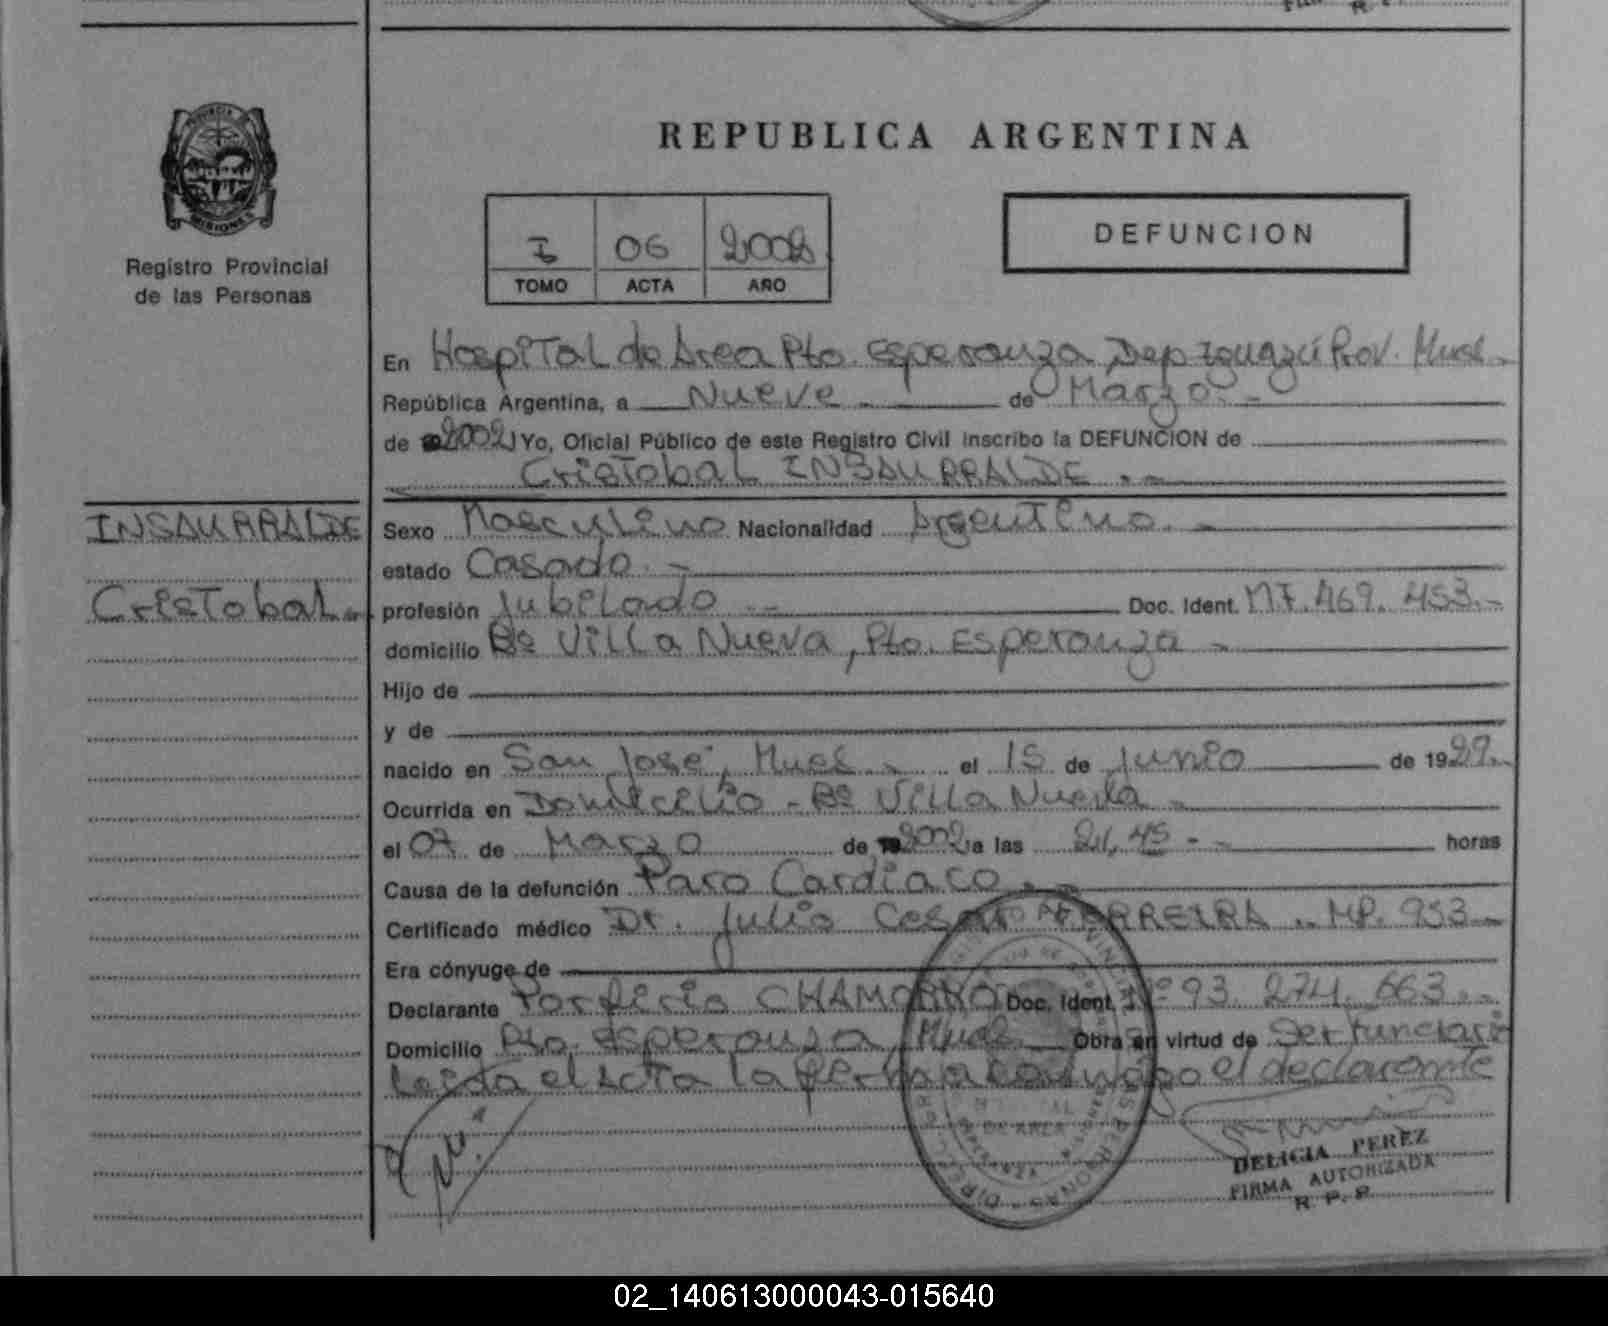 REPUBLICA ARGENTINA
MISIONES
Registro Provincial
de las Personas
I 06 2002
TOMO ACTA AÑO
DEFUNCION
En Hospital de Area Pto. Esperanza, Dep Iguazú Prov. Mnes.
República Argentina, a Nueve de Marzo.
de 2002 Yo, Oficial Público de este Registro Civil inscribo la DEFUNCION de
Cristobal INSAURRALDE.
INSAURRALDE
Cristobal.
Sexo Masculino Nacionalidad Argentino.
estado Casado.
profesión Jubilado Doc. Ident. M7.469.453.
domicilio Bº Villa Nueva, Pto. Esperanza
Hijo de
y de
nacido en San José, Mnes. el 15 de Junio de 1929.
Ocurrida en Domicilio - Bº Villa Nueva
el 07 de Marzo de 2002 a las 21,45 horas
Causa de la defunción Paro Cardiaco.
Certificado médico Dr. Julio Cesar FERREIRA. MP. 953
Era cónyuge de
Declarante Porfirio CHAMORRO Doc. Ident. Nº 93.274.663.
Domicilio Pto. Esperanza, Mnes. Obra en virtud de Ser funciario
Leida el acta la firma conmigo el declarante
DE AREA
DELICIA PEREZ
FIRMA AUTORIZADA
R. P. P.
02_140613000043-015640